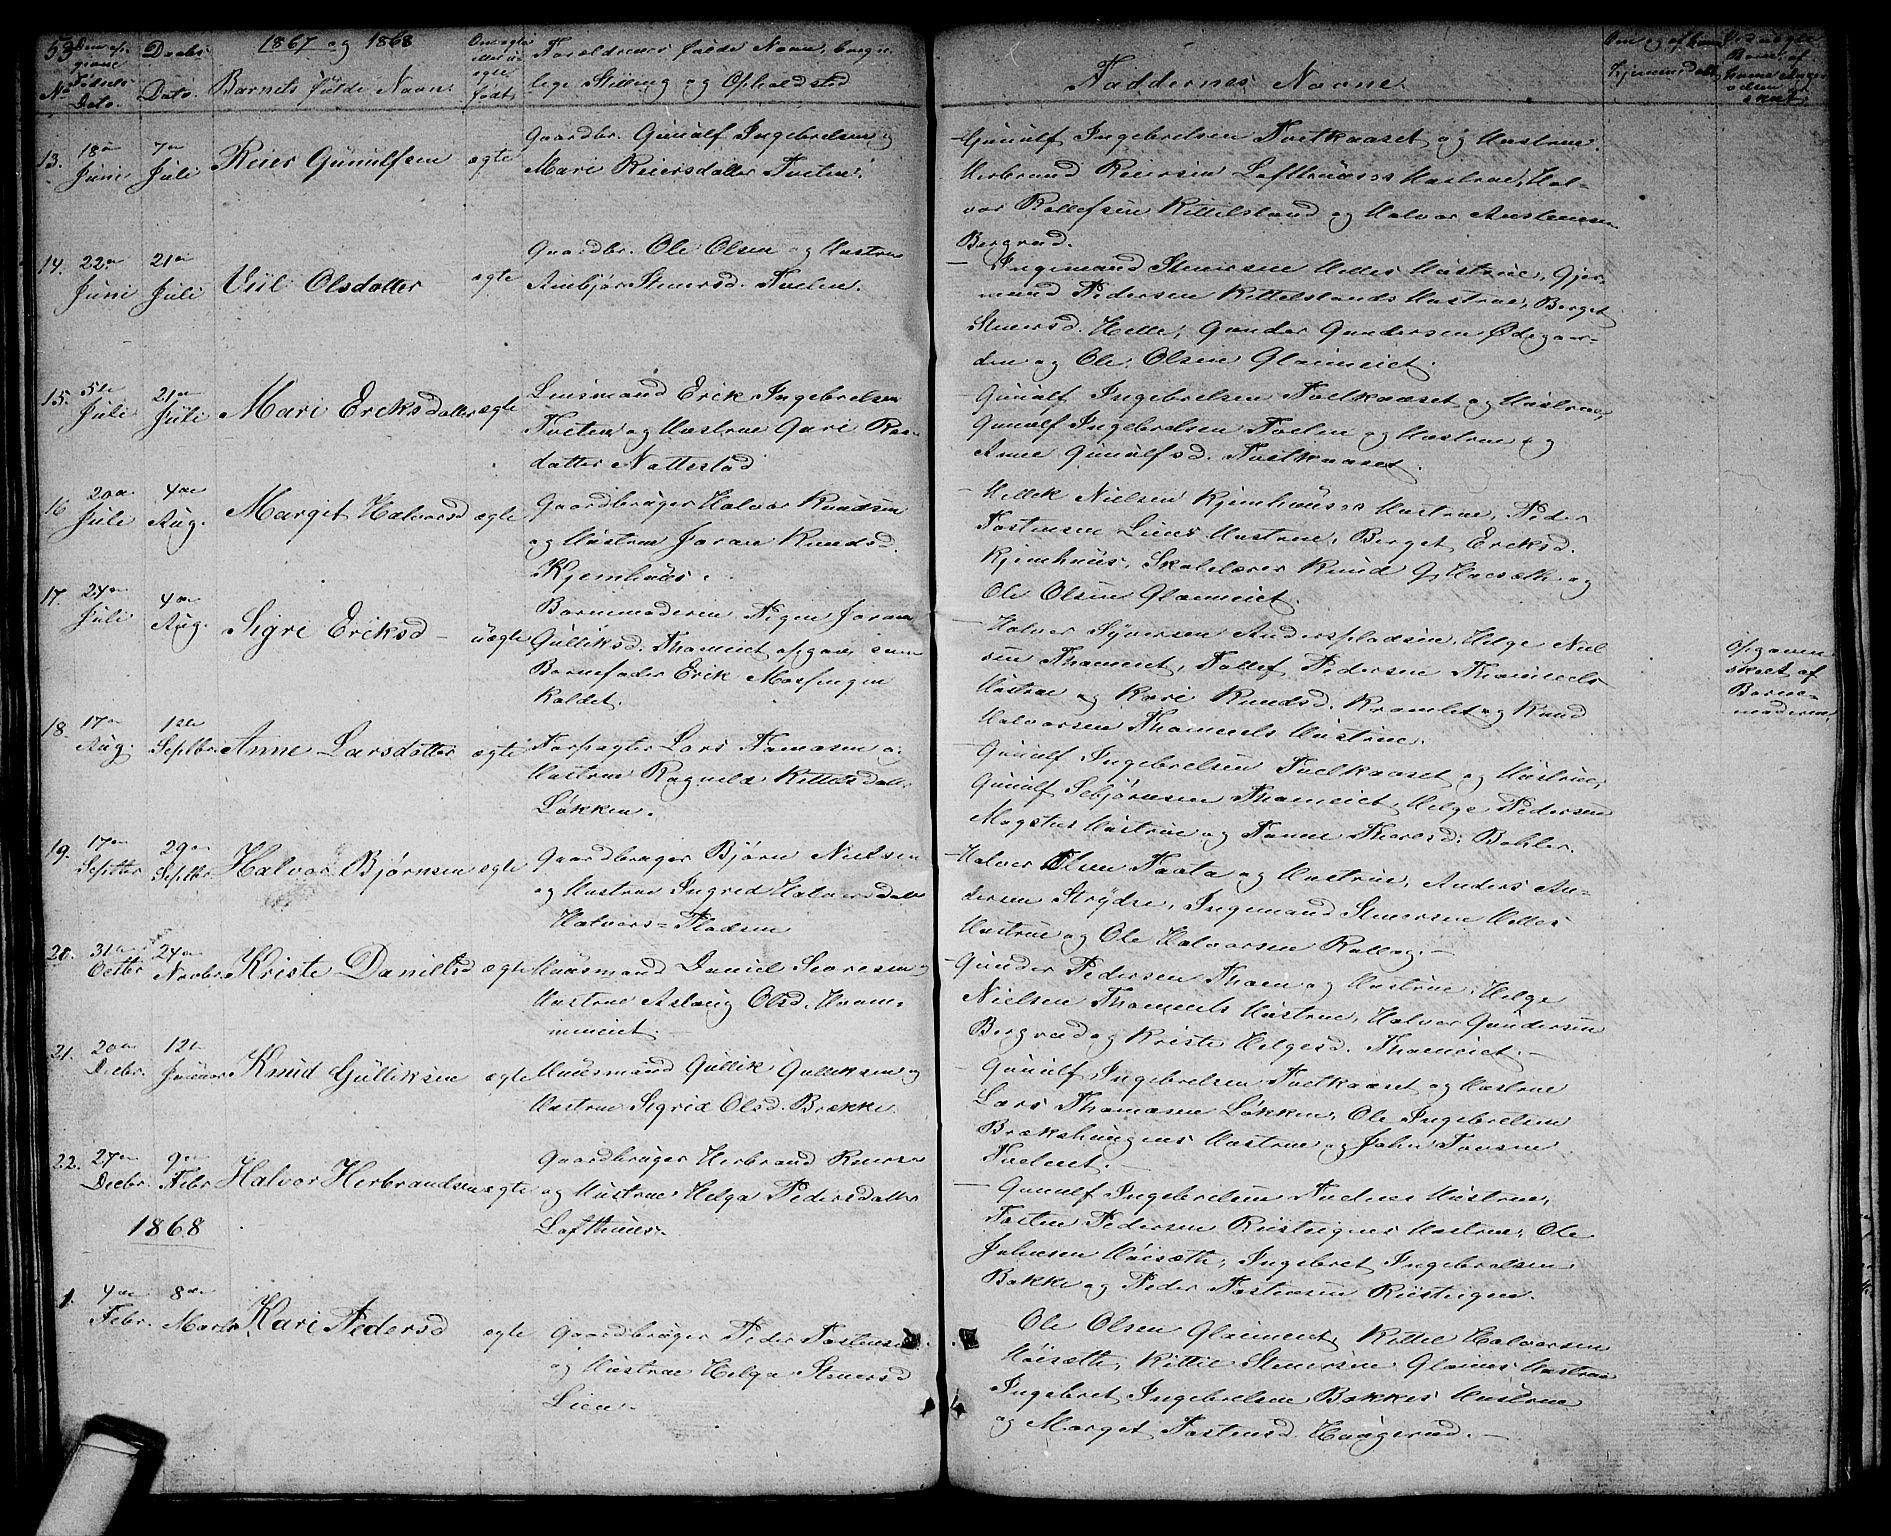 53
1867 og 1868
No
Den opgivne Fødsels Dato.
Daabs Dato.
Barnets fulde Navn.
Om ægte eller uægte født
Forældrenes fulde Navn, borger-
lige Stilling og Opholdsted
Faddernes Navne.
13. 18de Juni 7de Juli Reier Gunulfsen ægte
Gaardbr. Gunulf Ingebretsen og
Mari Reiersdatter Tveten.
Gunulf Ingebretsen Tvetkaaset og Hustrue.
Herbrand Reiersen Lofthuuses Hustrue, Hal-
vor Rollefsen Kittelsland og Halvor Anstensen
Bergrud.
14. 22de Juni 21de Juli Olsdatter ægte
Gaardbr. Ole Olsen og Hustrue
Ambjør Steners. Tveten.
Ingemand Stenersen Helles Hustrue, Gjer-
mund Pedersen Kittelslands Hustrue, Berget
Stenersd. Helle, Gunder Gundersen Ødegaar-
den og Ole Olsen Glaimeiet.
15. 5te Juli 21de Juli Mari Eriksdatter ægte
Leiemand Erik Ingebretsen
Tveten og Hustrue Guri
datter Nattestad
Gunulf Ingebretsen Tvetkaaset og Hustrue,
Gunulf Ingebretsen Tveten og Hustrue og
Anne Gunulfsd. Tvetkaaset.
16 20de Juli 4de Aug. Margit Halvorsd ægte
Gaardbruger Halvor Knudsen
og Hustrue Joran Knudsd.
Kjemhuus.
Hellek Nielsen Kjemhuuses Hustrue, Peder
Tostensen Liens Hustrue, Berget Eriksd.
Kjemhuus, Skolelærer Knud og
Ole Olsen Glaimeiet.
17. 24de Juli 4de Aug. Sigri Eriksd uægte
Barnemoderen Pigen Joran
Gulliksd. Thameiet opgav som
Barnefader Erik Mosfengen
kaldet.
Halvor Syversen Anderspladsen, Helge Niel-
sen Thameiet, Tollef Pedersen Thameiets
Hustrue og Kari Knudsd. og Knud
Halvorsen Thameiets Hustrue.
Opgaven
skeet af
Barne-
moderen.
18. 17de Aug. 1ste Septbr Anne Larsdatter ægte
Forpagter Lars Tomasen og
Hustrue Ragnild Kittelsdatter
Løkken.
Gunulf Ingebretsen Tvetkaaset og Hustrue,
Gunulf Thameiet, Helge Pedersen
Hustrue og Bøhler.
19. 17de Septbr 29de Septbr. Halvor Bjørnsen ægte
Gaardbruger Bjørn Nielsen
og Hustrue Ingrid Halvorsdatter
Halvors-Pladsen
Halvor Olsen Traata og Hustrue, Anders An-
dersen Ingemand Stenersen Helles
Hustrue og Ole Halvorsen Rollag.
20. 31te Octbr 24de Novbr Kriste Danielsd ægte
Huusmand Daniel Seversen og
Hustrue Aslaug Olsd.
Gunder Pedersen Thoen og Hustrue, Helge
Nielsen Thameiets Hustrue, Halvor Gundersen
Bergrud og Kriste Helgesd. Thameiet.
21. 20de Decbr. 12te Januar Knud Gulliksen ægte
Huusmand Gullik Gulliksen og
Hustrue Sigrid Olsd. Brække.
Gunulf Ingebretsen Tvetkaaset og Hustrue
Lars Thomasen Løkken, Ole Ingebretsen
Hustrue og John
Tveteiet.
22. 27de Decbr. 9de Febr Halvor Herbrandsen ægte
Gaardbruger Herbrand Reiersen
og Hustrue Helga Pedersdatter
Lofthuus.
Gunulf Ingebretsen Tvetens Hustrue,
Tosten Pedersen Hustrue, Ole
Johnsen Høisæth, Ingebret Ingebretsen
Bakke og Peder Tostensen
1868
1. 4de Febr. 8de Marts Kari Pedersd ægte
Gaardbruger Peder Tostensen
og Hustrue Helga Stenersd
Lien.
Ole Olsen Glaimeiet, Kittil Halvorsen
Høisæth, Kittil Stenersen Hustrue
Ingebret Ingebretsen Bakkes Hustrue
og Marget Tostensd. Haugerud.